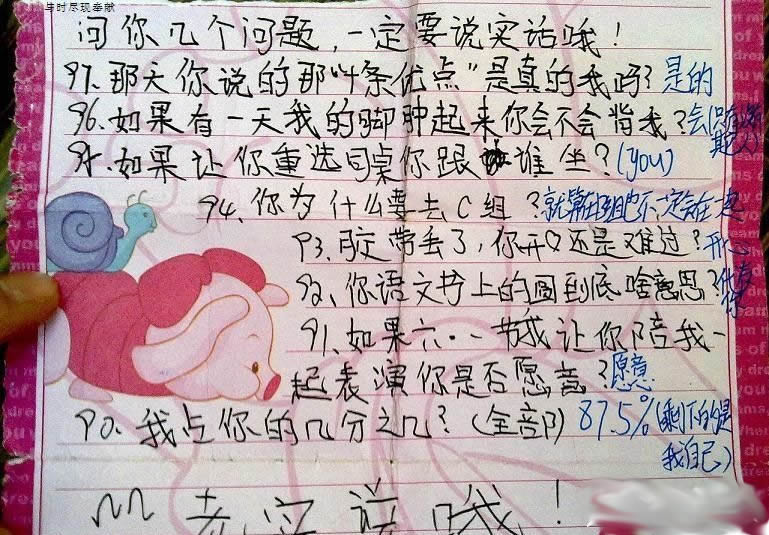 与时尽现奉献
问你几个问题,一定要说实话哦!
97.那天你说的那"4条优点"是真的我吗?是的
96.如果有一天我的脚肿起来你会不会背我?会
95.如果让你重选同桌你跟谁坐?(you)
94.你为什么要去C组?就算在B组也不一定会在一起
93.胶带丢了,你开心还是难过?开心
92、你语文书上的圆到底啥意思?代表你
91.如果六·一节我让你陪我一
起表演你是否愿意?愿意
90.我占你的几分之几?(全部)87.5%(剩下的是
我自己)
老实说哦!